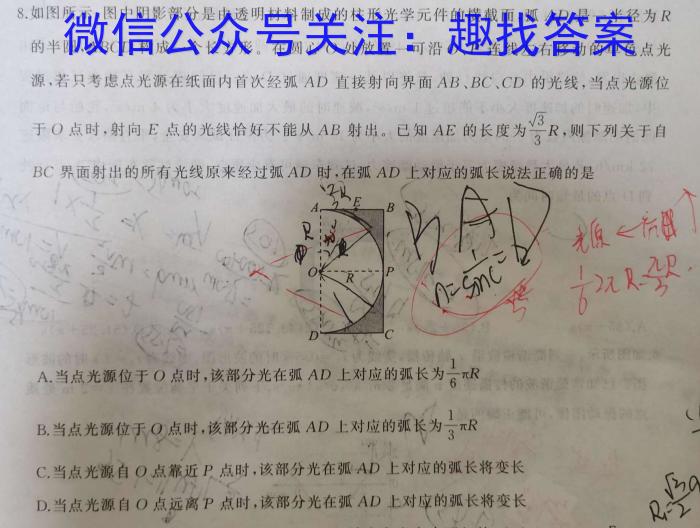 8.如图所示,图中阴影部分是由透明材料制成的柱形光学元件的横截面,弧AD是一半径为R
微信公众号关注：趣找答案
的半圆,ABCD构成一长方形。在圆心O处放置一可沿OP连线左右移动的单色点光
源,若只考虑点光源在纸面内首次经弧AD直接射向界面AB、BC、CD的光线,当点光源位
于O点时,射向E点的光线恰好不能从AB射出。已知AE的长度为√3/3R,则下列关于自
BC界面射出的所有光线原来经过弧AD时,在弧AD上对应的弧长说法正确的是
A E B
O R P
D C
n=1/sinC
光源
A.当点光源位于O点时,该部分光在弧AD上对应的弧长为1/6πR
B.当点光源位于O点时,该部分光在弧AD上对应的弧长为1/3πR
C.当点光源自O点靠近P点时,该部分光在弧AD上对应的弧长将变长
D.当点光源自O点远离P点时,该部分光在弧AD上对应的弧长将变长